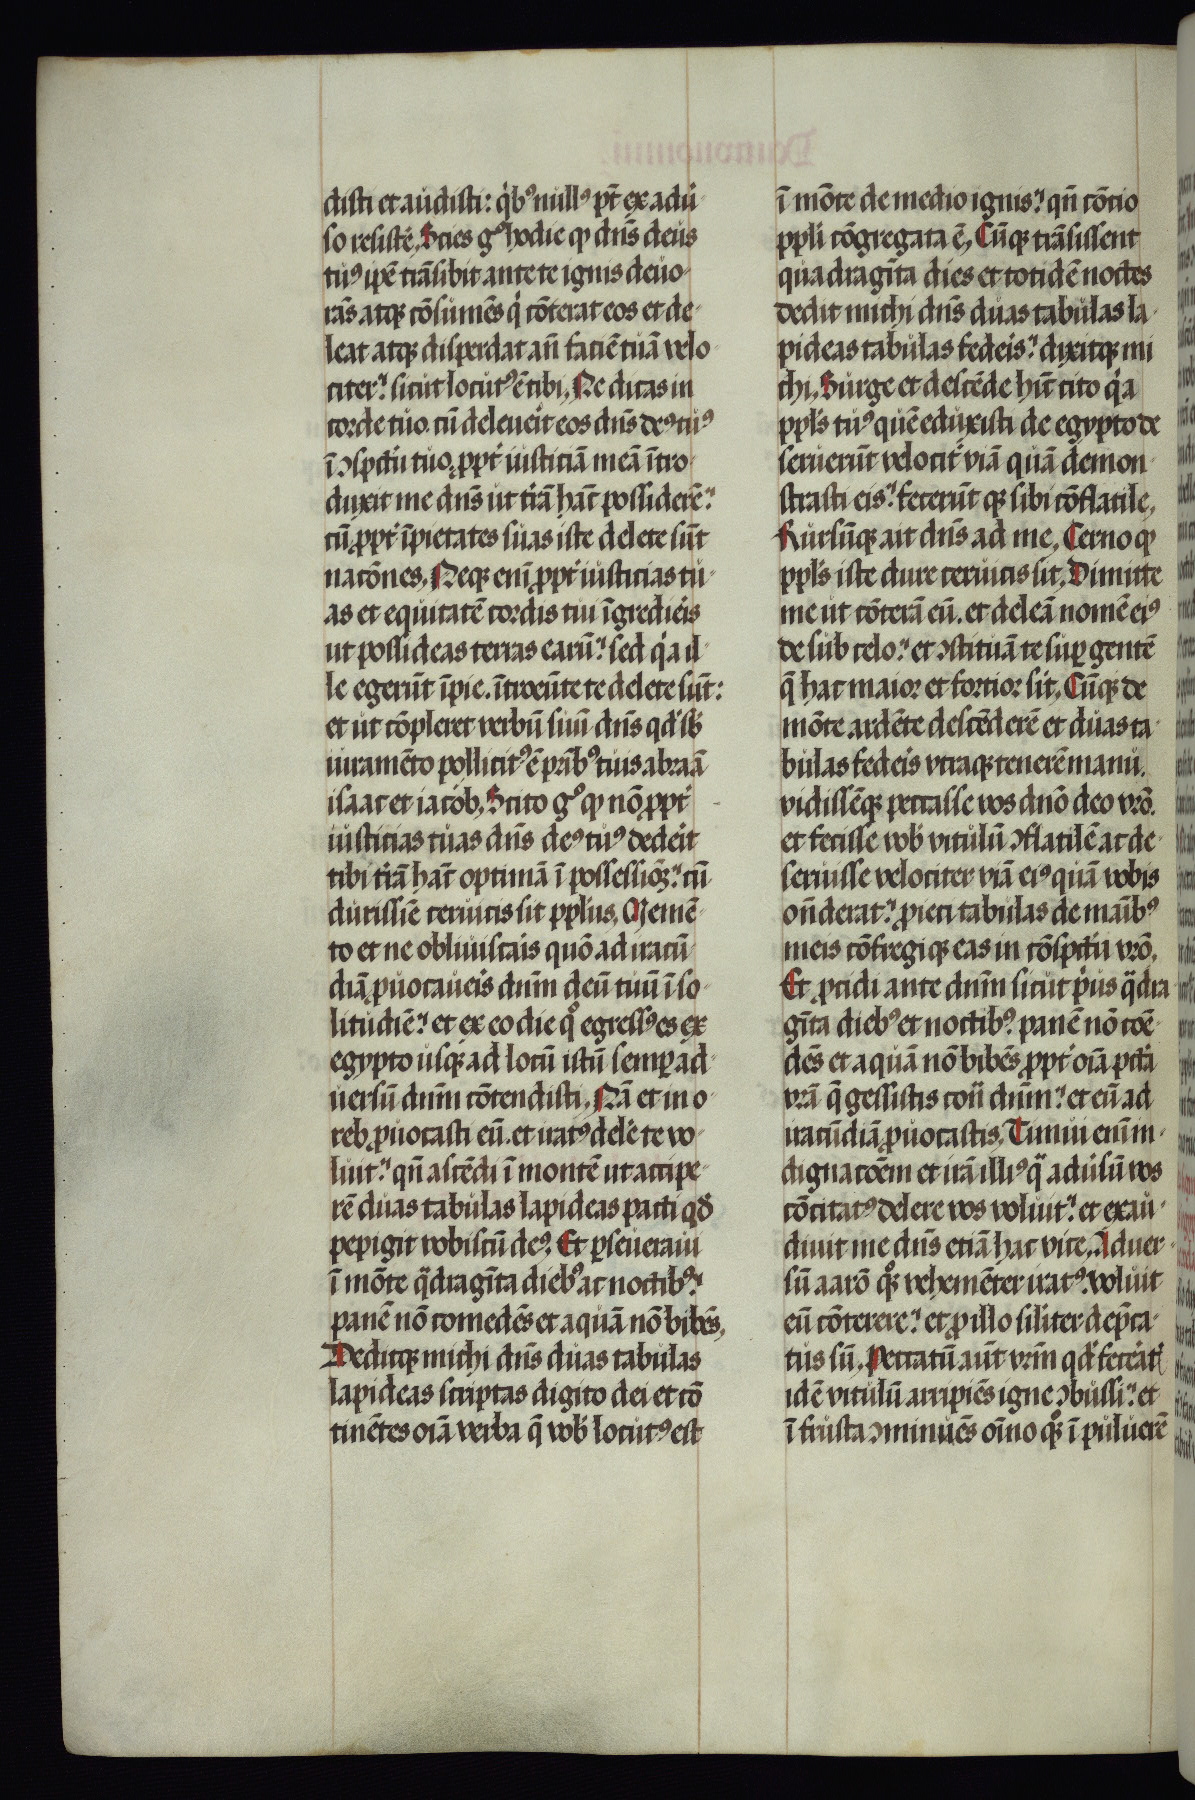 disti et audisti: q̇bꝰ nullꝰ pt̄ ex adu̇
so resistė. Scies gͦ hodie ꝙ dn̄s deus
tuꝰ ip̄e trāsibit ante te ignis deuo-
rās atqꝫ cōsumēs q̇ cōterat eos et de-
leat atqꝫ disperdat an̄ faciē tuā velo-
citer? sicut locutꝰ ē tibi. Ne dicas in
corde tuo. cū deleuėit eos dn̄s deꝰ tuꝰ
ī ↄspc̄tu tuo. ꝓpt̓ iusticiā meā ītro-
duxit me dn̄s ut tr̓ā hāc possiderē?
cū ꝓpt̓ īpietates suas iste delete sūt
nac̄ōnes. Neqꝫ enī ꝓpt̓ iusticias tu-
as et equitatē cordis tui īgredieis
ut possideas terras earū? sed q̇a il-
le egerūt īpie. ītroeūte te delete sūt:
et ut cōpleret verbū suū dn̄s qd̓ sb̓
iuramēto pollicitꝰ ē pr̄ibꝰ tuis abraā
isaac et iacob. Scito gͦ ꝙ nō ꝓpt̓
iusticias tuas dn̄s deꝰ tuꝰ dedėit
tibi tr̓ā hāc optimā ī possessiōꝫ? cū
durissīe ceruicis sit ppl̓us. Memē-
to et ne obliuiscais quō ad iracū-
diā ꝓuocaueis dn̄m deū tuū ī so-
litudīe? et ex eo die qͦ egressꝰ es ex
egypto usqꝫ ad locū istū semꝑ ad-
uersū dn̄m cōtendisti. Nā et in o-
reb ꝓuocasti eū. et iratꝰ delė te vo-
luit? qn̄ ascēdi ī montē ut accipe-
rē duas tabulas lapideas pacti qd̓
pepigit vobiscū deꝰ. Et ꝑseueraui
ī mōte q̈dragīta diebꝰ ac noctibꝰ?
panē nō comedēs et aquā nō bibēs.
Deditqꝫ michi dn̄s duas tabulas
lapideas scriptas digito dei et cō
tinētes oīa verba q̄ vob̓ locutꝰ est
ī mōte de medio ignis? qn̄ cōcio
ppl̓i cōgregata ē. Cūqꝫ trāsissent
quadragīta dies et totidē noctes
dedit michi dn̄s duas tabulas la-
pideas tabulas fedeis? dixitqꝫ mi
chi. Surge et descēde hīc cito q̇a
ppl̓s tuꝰ quē eduxisti de egypto de
seruerūt velocit̓ viā quā demon-
strasti eis? fecerūt qꝫ sibi cōflatile.
Rursūqꝫ ait dn̄s ad me. Cerno ꝙ
ppl̓s iste dure ceruicis sit. Dimitte
me ut cōterā eū. et deleā nomē eiꝰ
de sub celo? et ↄstituā te suꝑ gentē
q̄ hac maior et fortior sit. Cūqꝫ de
mōte ardēte descēderē et duas ta-
bulas fedeis vtraqꝫ tenerē manu.
vidissēqꝫ peccasse vos dn̄o deo vr̄o.
et fecisse vob̓ vitulū ↄflatilē ac de-
seruisse velociter viā eiꝰ quā vobis
on̄derat? ꝓieci tabulas de maībꝰ
meis cōfregiqꝫ eas in cōspc̄tu vr̄o.
Et ꝓcidi ante dn̄m sicut pi̓us q̈dra
gīta diebꝰ et noctibꝰ. panē nō coē-
dēs et aquā nō bibēs ꝓpt̓ oīa pctā
vr̄a q̄ gessistis con̄ dn̄m? et eū ad
iracūdiā ꝓuocastis. Timui enī in-
dignac̄ōem et irā illiꝰ q̈ adu̇sū vos
cōcitatꝰ delere vos voluit? et exau-
diuit me dn̄s etiā hac vice. Aduer-
sū aarō qͦꝫ vehemēter iratꝰ. voluit
eū cōterere? et ꝓ illo sīliter dep̄ca-
tus sū. Peccatū aut̄ vr̄m qd̓ fecėat̓
idē vitulū arripiēs igne ↄbussi? et
ī frusta ↄminuēs oīno qͦꝫ ī puluerē